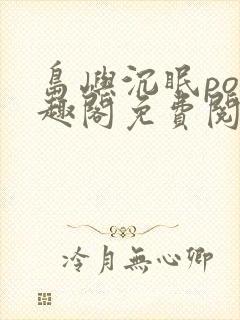 島嶼沉眠po
趣閣免費閱
冷月無心卿